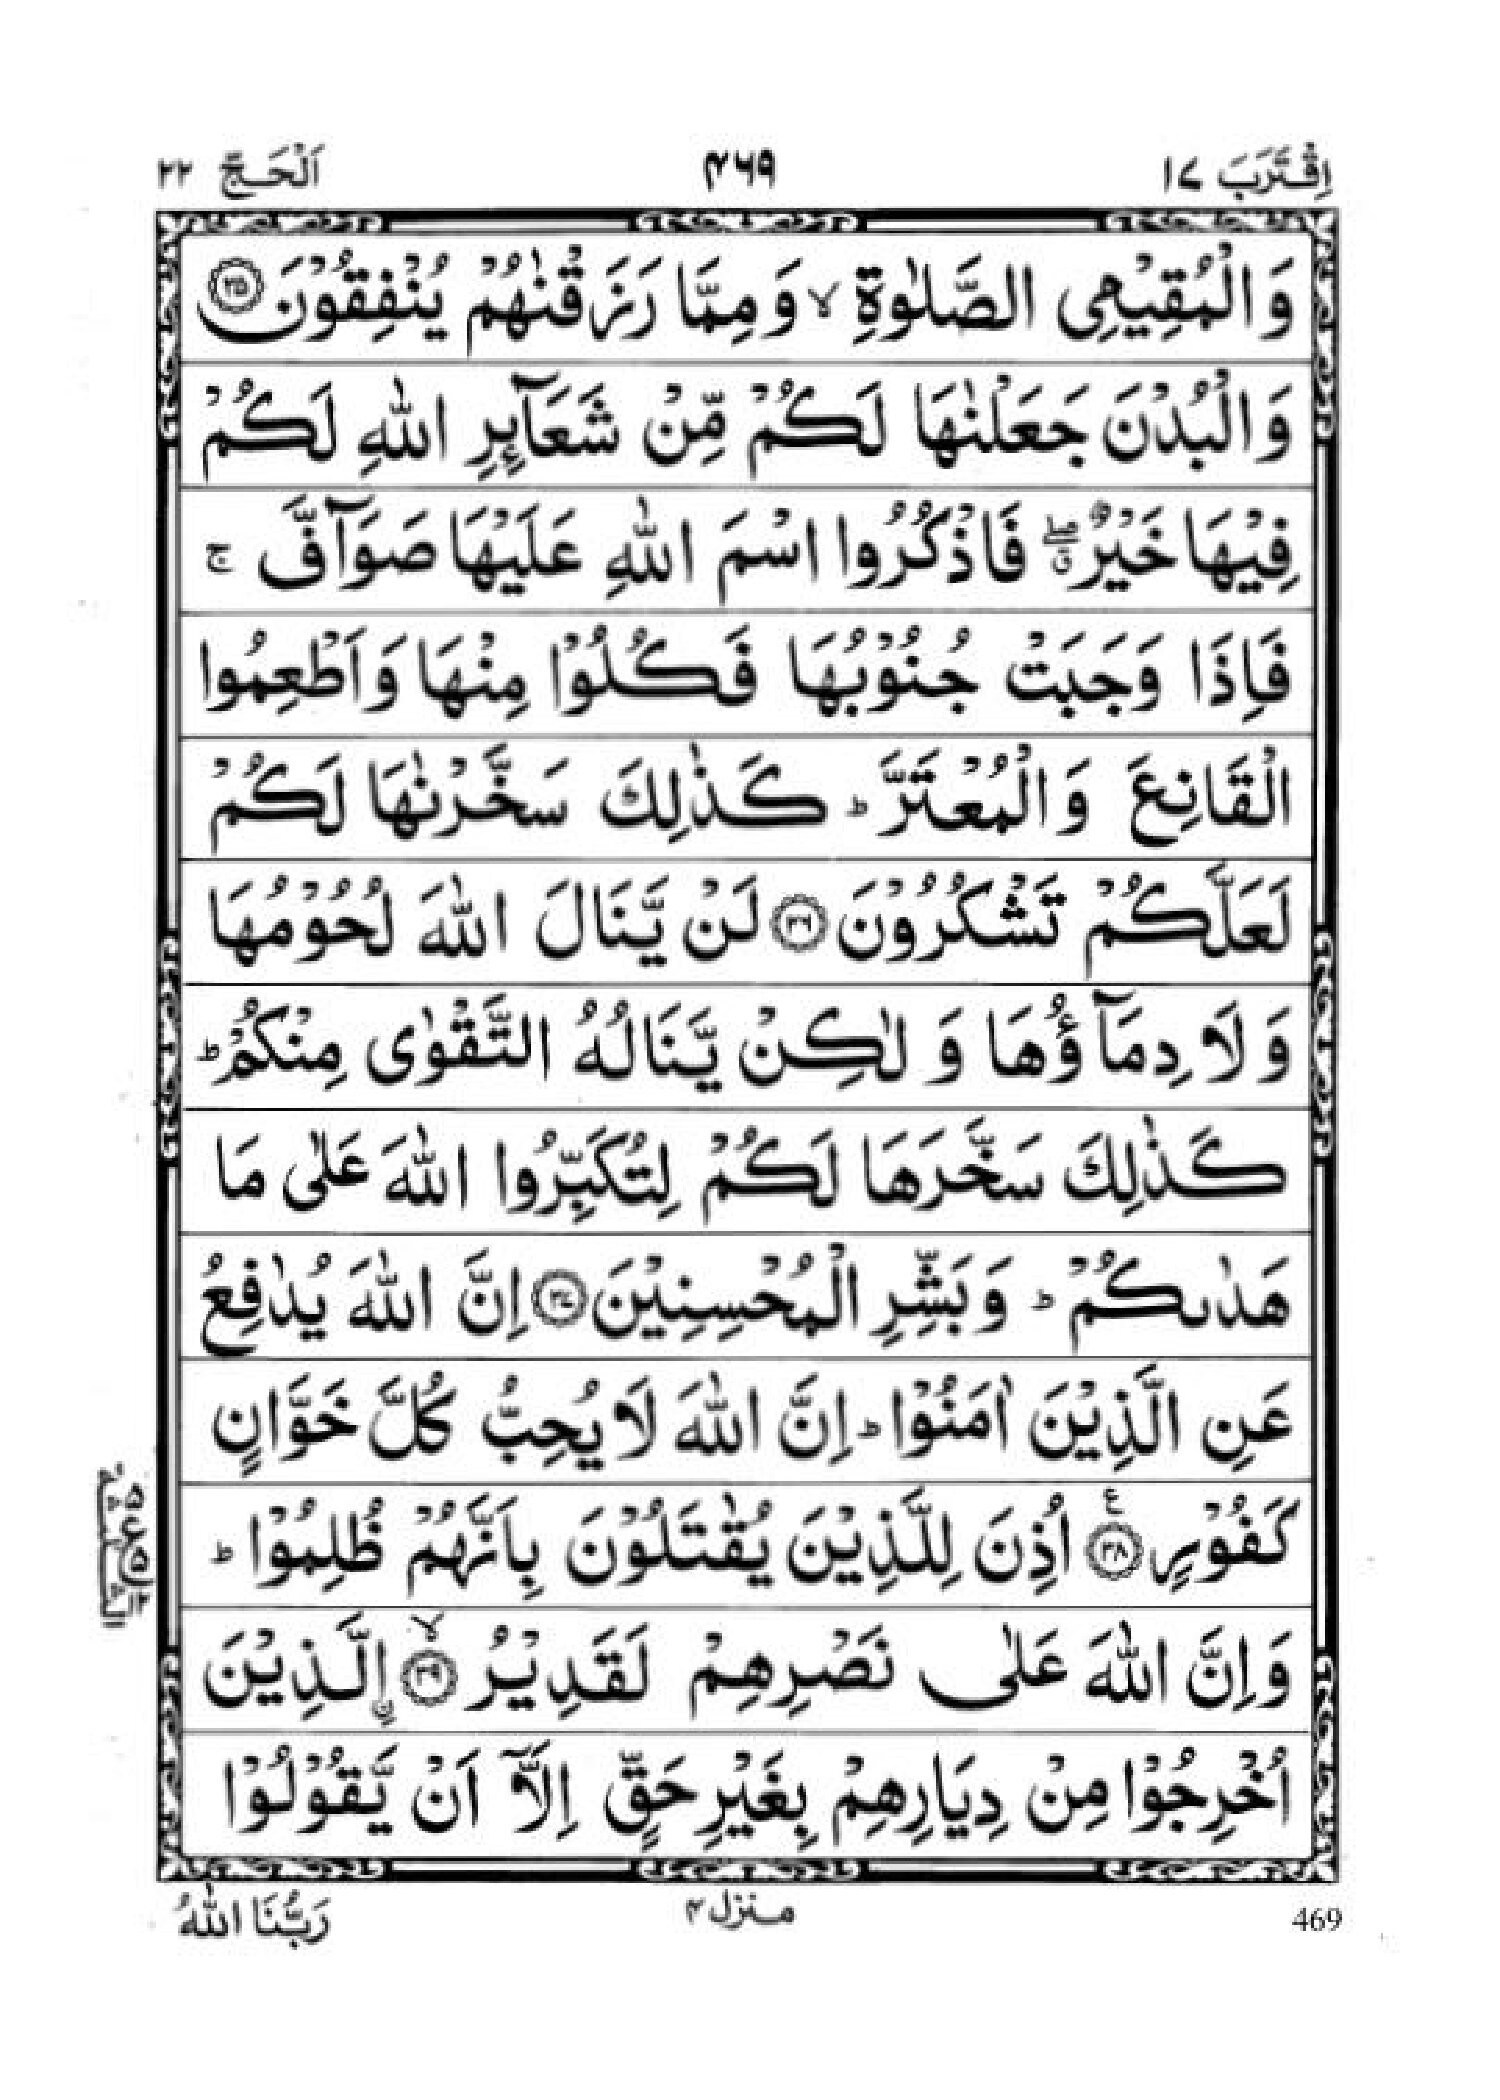 اِقْتَرَبَ ١٧
٤٦٩
اَلْحَـجّ ٢٢
وَالْمُقِيْمِى الصَّلٰوةِ ۙ وَمِمَّا رَزَقْنٰهُمْ يُنْفِقُوْنَ ﴿٣٥﴾
وَالْبُدْنَ جَعَلْنٰهَا لَكُمْ مِّنْ شَعَآىِٕرِ اللّٰهِ لَكُمْ
فِيْهَا خَيْرٌ ۖ فَاذْكُرُوا اسْمَ اللّٰهِ عَلَيْهَا صَوَآفَّ ۚ
فَاِذَا وَجَبَتْ جُنُوْبُهَا فَكُلُوْا مِنْهَا وَاَطْعِمُوا
الْقَانِعَ وَالْمُعْتَرَّ ؕ كَذٰلِكَ سَخَّرْنٰهَا لَكُمْ
لَعَلَّكُمْ تَشْكُرُوْنَ ﴿٣٦﴾ لَنْ يَّنَالَ اللّٰهَ لُحُوْمُهَا
وَلَا دِمَآؤُهَا وَلٰكِنْ يَّنَالُهُ التَّقْوٰى مِنْكُمْ ؕ
كَذٰلِكَ سَخَّرَهَا لَكُمْ لِتُكَبِّرُوا اللّٰهَ عَلٰى مَا
هَدٰىكُمْ ؕ وَبَشِّرِ الْمُحْسِنِيْنَ ﴿٣٧﴾ اِنَّ اللّٰهَ يُدٰفِعُ
عَنِ الَّذِيْنَ اٰمَنُوْا ؕ اِنَّ اللّٰهَ لَا يُحِبُّ كُلَّ خَوَّانٍ
كَفُوْرٍ ﴿٣٨﴾ ع اُذِنَ لِلَّذِيْنَ يُقٰتَلُوْنَ بِاَنَّهُمْ ظُلِمُوْا ؕ
وَاِنَّ اللّٰهَ عَلٰى نَصْرِهِمْ لَقَدِيْرُ ﴿٣٩﴾ ۙ اۨلَّذِيْنَ
اُخْرِجُوْا مِنْ دِيَارِهِمْ بِغَيْرِ حَقٍّ اِلَّآ اَنْ يَّقُوْلُوْا
رَبُّنَا اللّٰهُ
منزل ٤
469